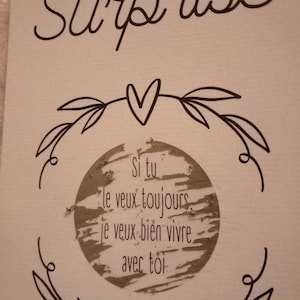 Surprise
Si tu
le veux toujours,
je veux bien vivre
avec toi